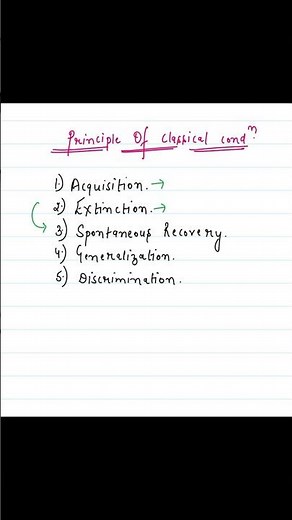 Principle Of Classical condⁿ.
1) Acquisition. →
2) Extinction. →
3) Spontaneous Recovery.
4) Generalization.
5) Discrimination.